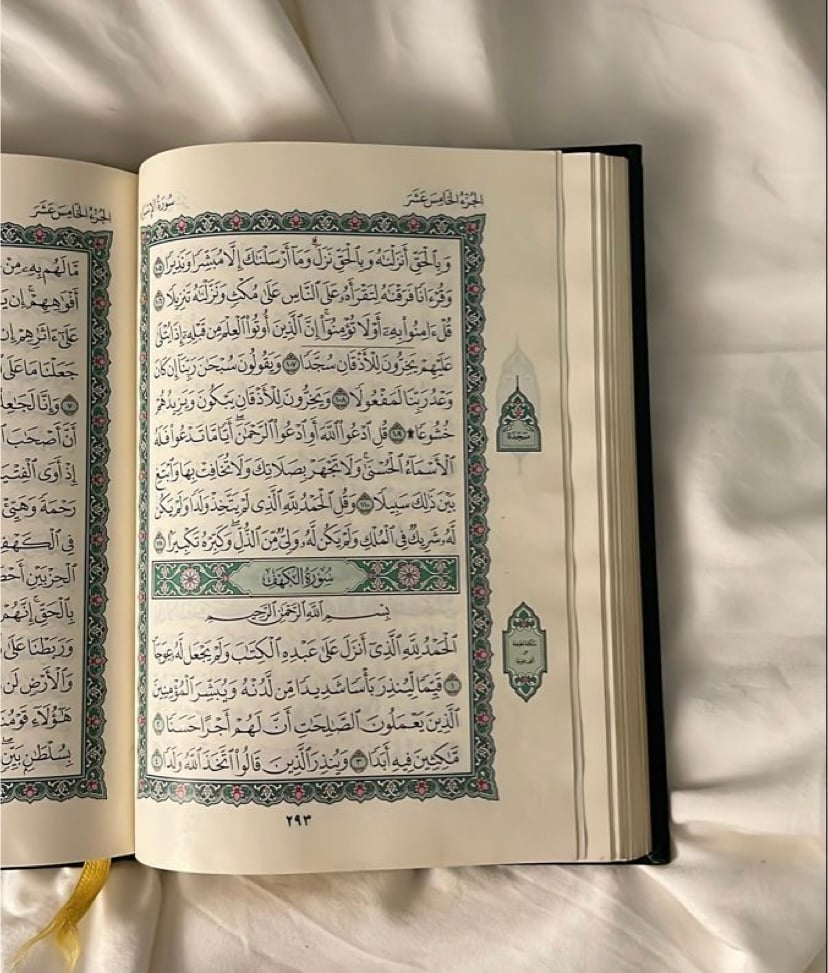 الجزء الخامس عشر
سورة الإسراء
وَبِالْحَقِّ أَنزَلْنَاهُ وَبِالْحَقِّ نَزَلَ وَمَا أَرْسَلْنَاكَ إِلَّا مُبَشِّرًا وَنَذِيرًا ١٠٥
وَقُرْءَانًا فَرَقْنَاهُ لِتَقْرَأَهُ عَلَى النَّاسِ عَلَى مُكْثٍ وَنَزَّلْنَاهُ تَنزِيلًا ١٠٦
قُلْ ءَامِنُوا بِهِ أَوْ لَا تُؤْمِنُوا إِنَّ الَّذِينَ أُوتُوا الْعِلْمَ مِن قَبْلِهِ إِذَا يُتْلَى
عَلَيْهِمْ يَخِرُّونَ لِلْأَذْقَانِ سُجَّدًا ١٠٧ وَيَقُولُونَ سُبْحَانَ رَبِّنَا إِن كَانَ
وَعْدُ رَبِّنَا لَمَفْعُولًا ١٠٨ وَيَخِرُّونَ لِلْأَذْقَانِ يَبْكُونَ وَيَزِيدُهُمْ
خُشُوعًا ۩ ١٠٩ قُلِ ادْعُوا اللَّهَ أَوِ ادْعُوا الرَّحْمَٰنَ أَيًّا مَّا تَدْعُوا فَلَهُ
الْأَسْمَاءُ الْحُسْنَى وَلَا تَجْهَرْ بِصَلَاتِكَ وَلَا تُخَافِتْ بِهَا وَابْتَغِ
بَيْنَ ذَٰلِكَ سَبِيلًا ١١٠ وَقُلِ الْحَمْدُ لِلَّهِ الَّذِي لَمْ يَتَّخِذْ وَلَدًا وَلَمْ يَكُن
لَّهُ شَرِيكٌ فِي الْمُلْكِ وَلَمْ يَكُن لَّهُ وَلِيٌّ مِّنَ الذُّلِّ وَكَبِّرْهُ تَكْبِيرًا ١١١
سُورَةُ الْكَهْفِ
بِسْمِ اللَّهِ الرَّحْمَٰنِ الرَّحِيمِ
الْحَمْدُ لِلَّهِ الَّذِي أَنزَلَ عَلَى عَبْدِهِ الْكِتَابَ وَلَمْ يَجْعَل لَّهُ عِوَجًا
١ قَيِّمًا لِّيُنذِرَ بَأْسًا شَدِيدًا مِّن لَّدُنْهُ وَيُبَشِّرَ الْمُؤْمِنِينَ
الَّذِينَ يَعْمَلُونَ الصَّالِحَاتِ أَنَّ لَهُمْ أَجْرًا حَسَنًا ٢
مَّاكِثِينَ فِيهِ أَبَدًا ٣ وَيُنذِرَ الَّذِينَ قَالُوا اتَّخَذَ اللَّهُ وَلَدًا ٤
سجدة
٢٩٣
الجزء الخامس عشر
مَّا لَهُم بِهِ مِنْ
أَفْوَاهِهِمْ إِن
عَلَى ءَاثَارِهِمْ إِن
جَعَلْنَا مَا عَلَى
٧ وَإِنَّا لَجَاعِلُونَ
أَنَّ أَصْحَابَ
إِذْ أَوَى الْفِتْيَةُ
رَحْمَةً وَهَيِّئْ
فِي الْكَهْفِ
الْحِزْبَيْنِ أَحْصَى
بِالْحَقِّ إِنَّهُمْ
وَرَبَطْنَا عَلَى
وَالْأَرْضِ لَن
هَٰؤُلَاءِ قَوْمُنَا
بِسُلْطَانٍ بَيِّنٍ